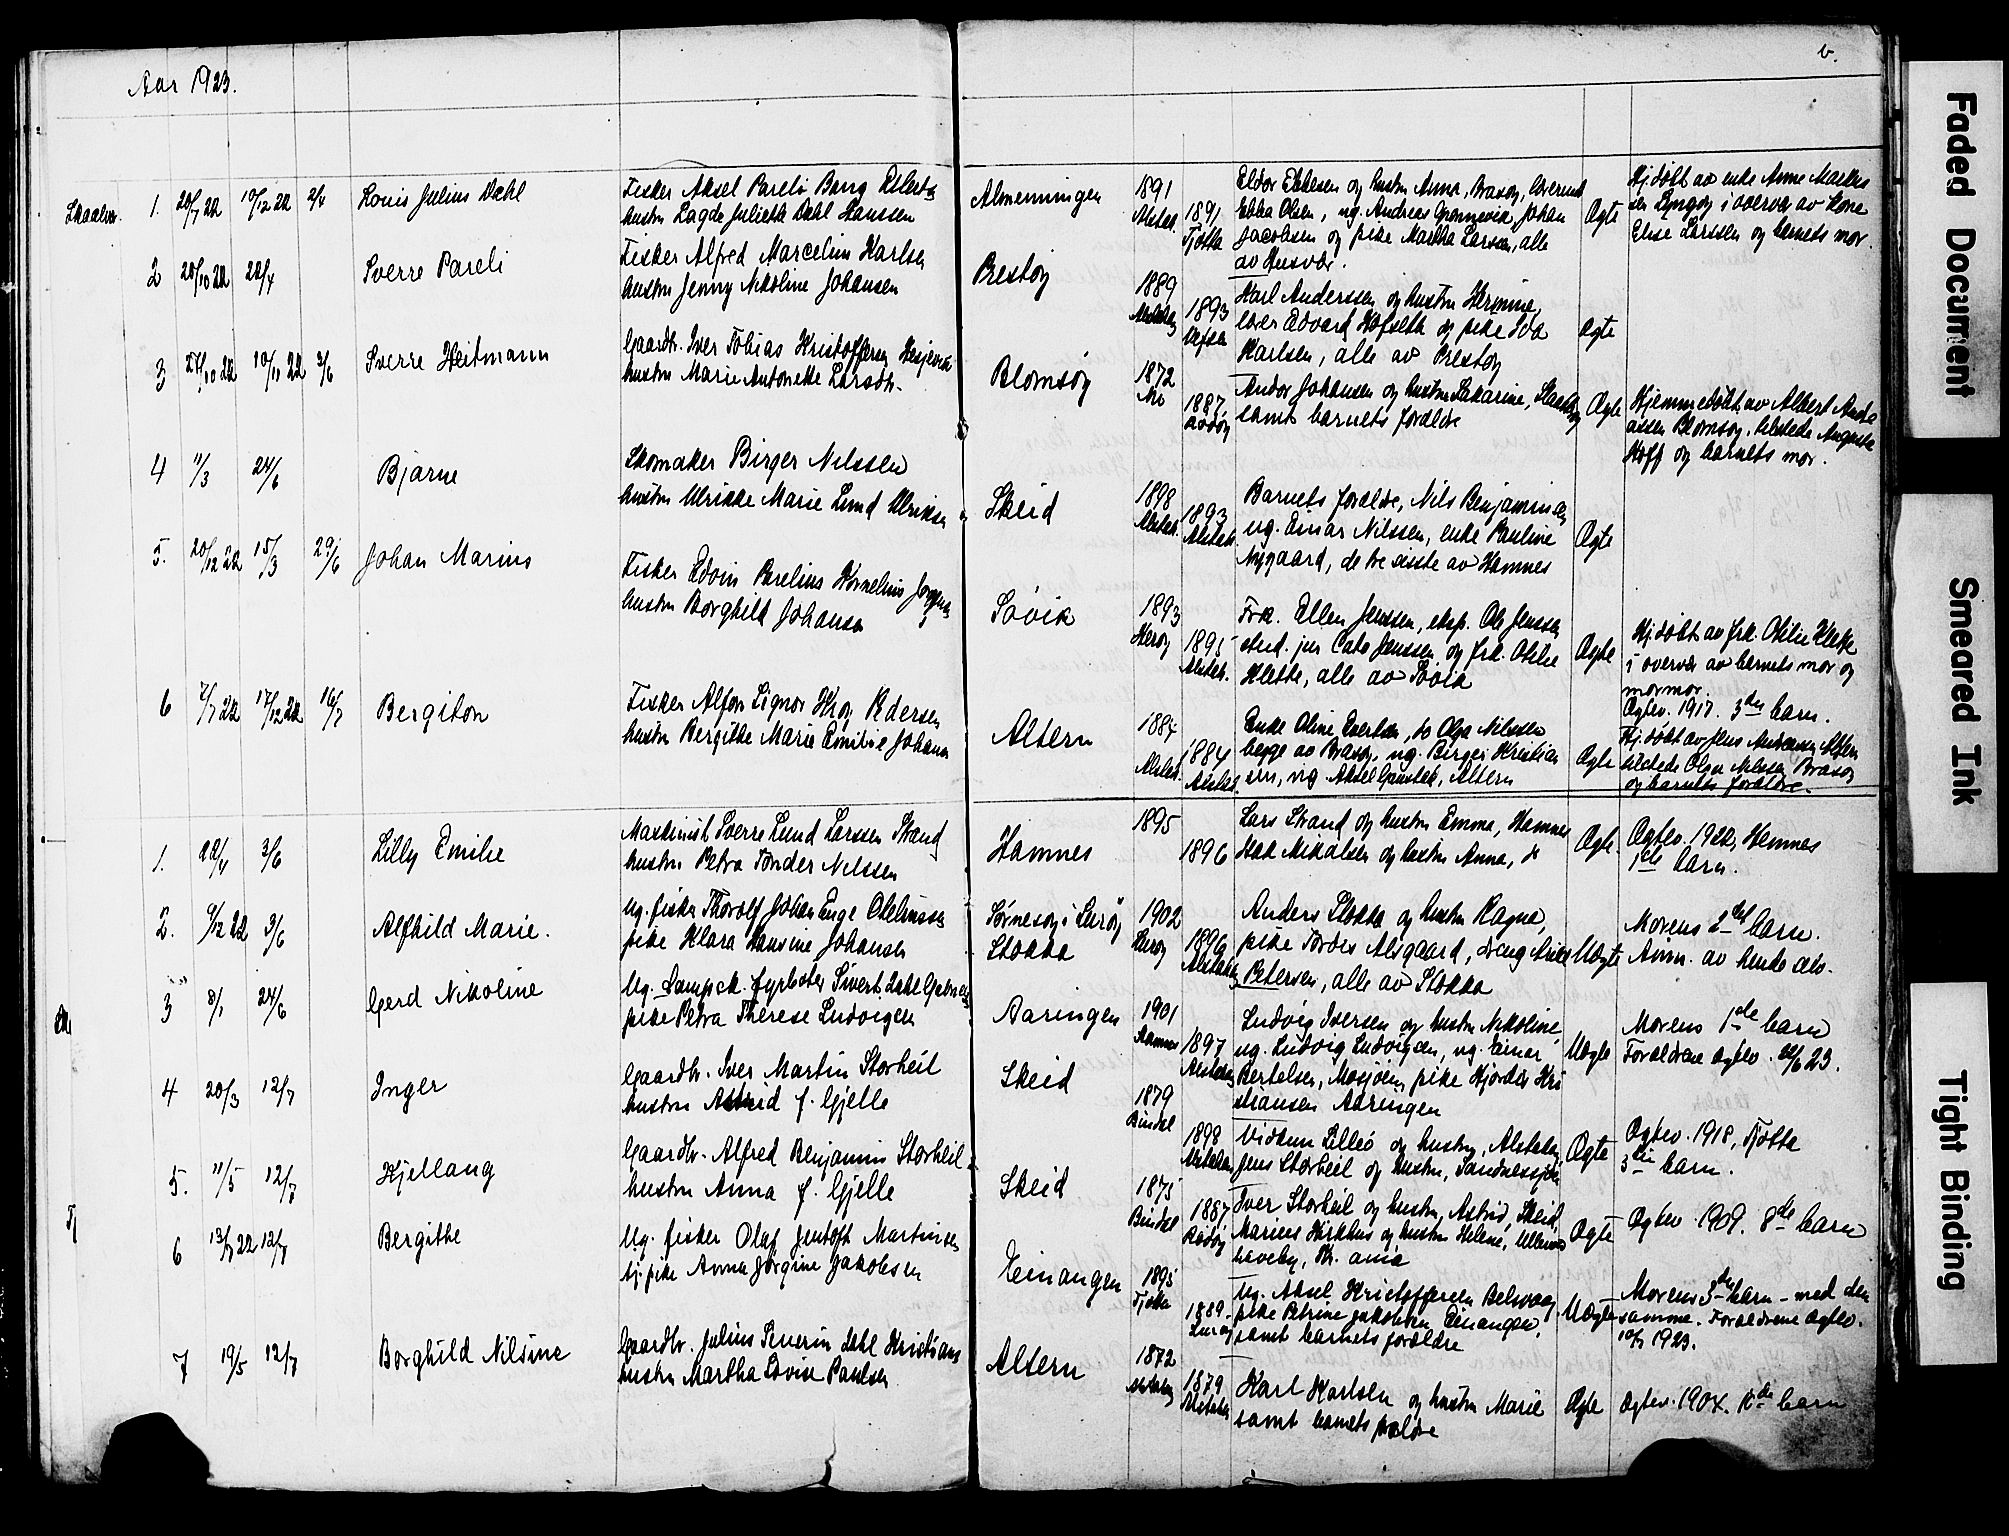 Aar 1923.
6.
1. 20/7 22 10/12 22 2/4 Louis Julius Dahl
Fisker Aksel Pareli Bang
hustru Lagda Juliette Dahl Hanssen
Almenningen
1891
Alstah.
1891
Tjøtta
og hustru Anna, Brasøy,
Ebba Olsen, ug. Andreas Grønnevik, Johan
Jacobsen og pike Martha Larsen, alle
av Husvær.
Ægte
Hj.døbt av enke Anne Markus
sen Lyngøy i overvær av
Elise Larssen og barnets mor.
2 28/10 22 22/4 Sverre Pareli
Fisker Alfred Marcelius Karlsen
hustru Jenny Nikoline Johansen
Prestøy
1889
1893
Vefsen
Karl Anderssen og hustru Hermine,
Edvard Hofseth og pike Ida
Karlsen, alle av Prestøy
Ægte
3 27/10 22 19/11 22 3/6 Sverre Heitmann
Gaardbr. Iver Tobias Kristoffersen
hustru Marie Antonette Larsdtr.
Blomsøy
1872
1887
Andor Johansen og hustru Sakarine,
samt barnets forældre
Ægte
Hjemmedøbt av Albert Andre
assen Blomsøy, tilstede Auguste
Hoff og barnets mor.
4 11/3 24/6 Bjarne
Skomaker Birger Nilssen
hustru Ulrikke Marie Lund Ulriksen
Skeid
1898
Alstah.
1893
Alstah.
Barnets forældre, Nils Benjaminsen
ug. Einar Nilssen, enke Pauline
Nygaard, de tre siste av Hamnes
Ægte
5. 20/12 22 15/3 29/6 Johan Marius
Fisker Edvin Parelius Kornelius
hustru Borghild Johansen
Søvik
1893
Herøy
1895
Alstah.
Frk. Ellen Jenssen, eksp. Ole Jenssen
stud. jur Cato Jenssen og frk. Otilie
Klette, alle av Søvik
Ægte
Hj.døbt av frk. Otilie Klette
i overvær av barnets mor og
mormor.
Ægtev. 1917. 3die barn.
6 7/7 22 17/12 22 16/7 Bergiton
Fisker Alfon Signor Krog Pedersen
hustru Bergitte Marie Emilie Johansen
Altern
1884
Alstah.
1884
Enke Oline Evertsen, do Olga Nilssen
begge av Brasøy, ug. Birger Kristian
sen, ug Aksel Altern
Ægte
Hj.døbt av Jens Andersen Altern
tilstede Olga Nilssen Brasøy
og barnets forældre.
1. 22/4 3/6 Lilly Emilie
Maskinist Sverre Lund Larssen Strand
hustru Petra Tønder Nilssen
Hamnes
1895
1896
Lars Strand og hustru Emma, Hamnes
Mikalsen og hustru Anna, do
Ægte
Ægtev. 1922, Hamnes
1ste barn.
2. 9/12 22 3/6 Alfhild Marie.
Ug. fisker Thorolf Johan Enge
pike Klara Hansine Johansen
Sørnesøy i Lurøy
Stokka
1902
Lurøy
1896
Anders Stokka og hustru Ragna,
pike Tordis Alsgaard, dreng
Petersen, alle av Stokka
Uægte
Morens 2det barn.
Anm. av hende selv.
3 8/1 24/6 Gerd Nikoline
Ug. Dampsk. fyrbøter Sivert Dahl
pike Petra Therese Ludvigsen
Aaringen
1901
Hamnes
1897
Ludvig Iversen og hustru Nikoline,
ug. Ludvig Ludvigsen, ug. Einar
Bertelsen, Mosjøen, pike Hjørdis Kri
stiansen Aaringen
Uægte
Morens 1ste barn
Forældrene ægtev. 24/6 23.
4 20/3 12/7 Inger
Gaardbr. Iver Martin Storheil
hustru Astrid f. Gjelle
Skeid
1879
Bindal
1898
Vidkun Lilleø og hustru, Alstahg,
Jens Storheil og hustru, Sandnessjøen
Ægte
Ægtev. 1918, Tjøtta
3die barn.
5. 11/5 12/7 Kjellaug
Gaardbr. Alfred Benjamin Storheil
hustru Anna f. Gjelle
Skeid
1875
Bindal
1887
Rødøy
Iver Storheil og hustru, Astrid, Skeid,
Marius og hustru Helene, Ullevaal
haveby, Kr.ania
Ægte
Ægtev 1909. 8de barn
6 13/7 22 12/7 Bergithe
Ug. fisker Olaf Jentoft Martinsen
pike Anna Jørgine Jakobsen
Einangen
1895
Tjøtta
1889
Lurøy
Ug. Aksel Kristoffersen Belsvaag,
pike Petrine Jakobsen, Einangen,
samt barnets forældre
Uægte
Morens 3die barn - med den
samme. Forældrene ægtev.
1923.
7 19/5 12/7 Borghild Nilsine
Gaardbr. Julius Severin Dahl Kristians
hustru Martha Lovise Paulsen
Altern
1872
1879
Karl Karlsen og hustru Marie
samt barnets forældre
Ægte
Ægtev. 1904. barn
Faded Document
Smeared Ink
Tight Binding